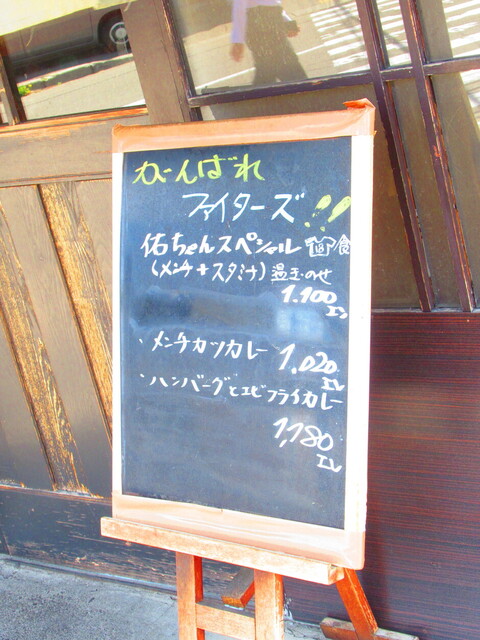 がんばれ
ファイターズ!!
佑ちゃんスペシャル 定食
(メンチ+スタミナ)温玉のせ
1.100
エン
・メンチカツカレー 1,020
エン
・ハンバーグとエビフライカレー
1,180
エン